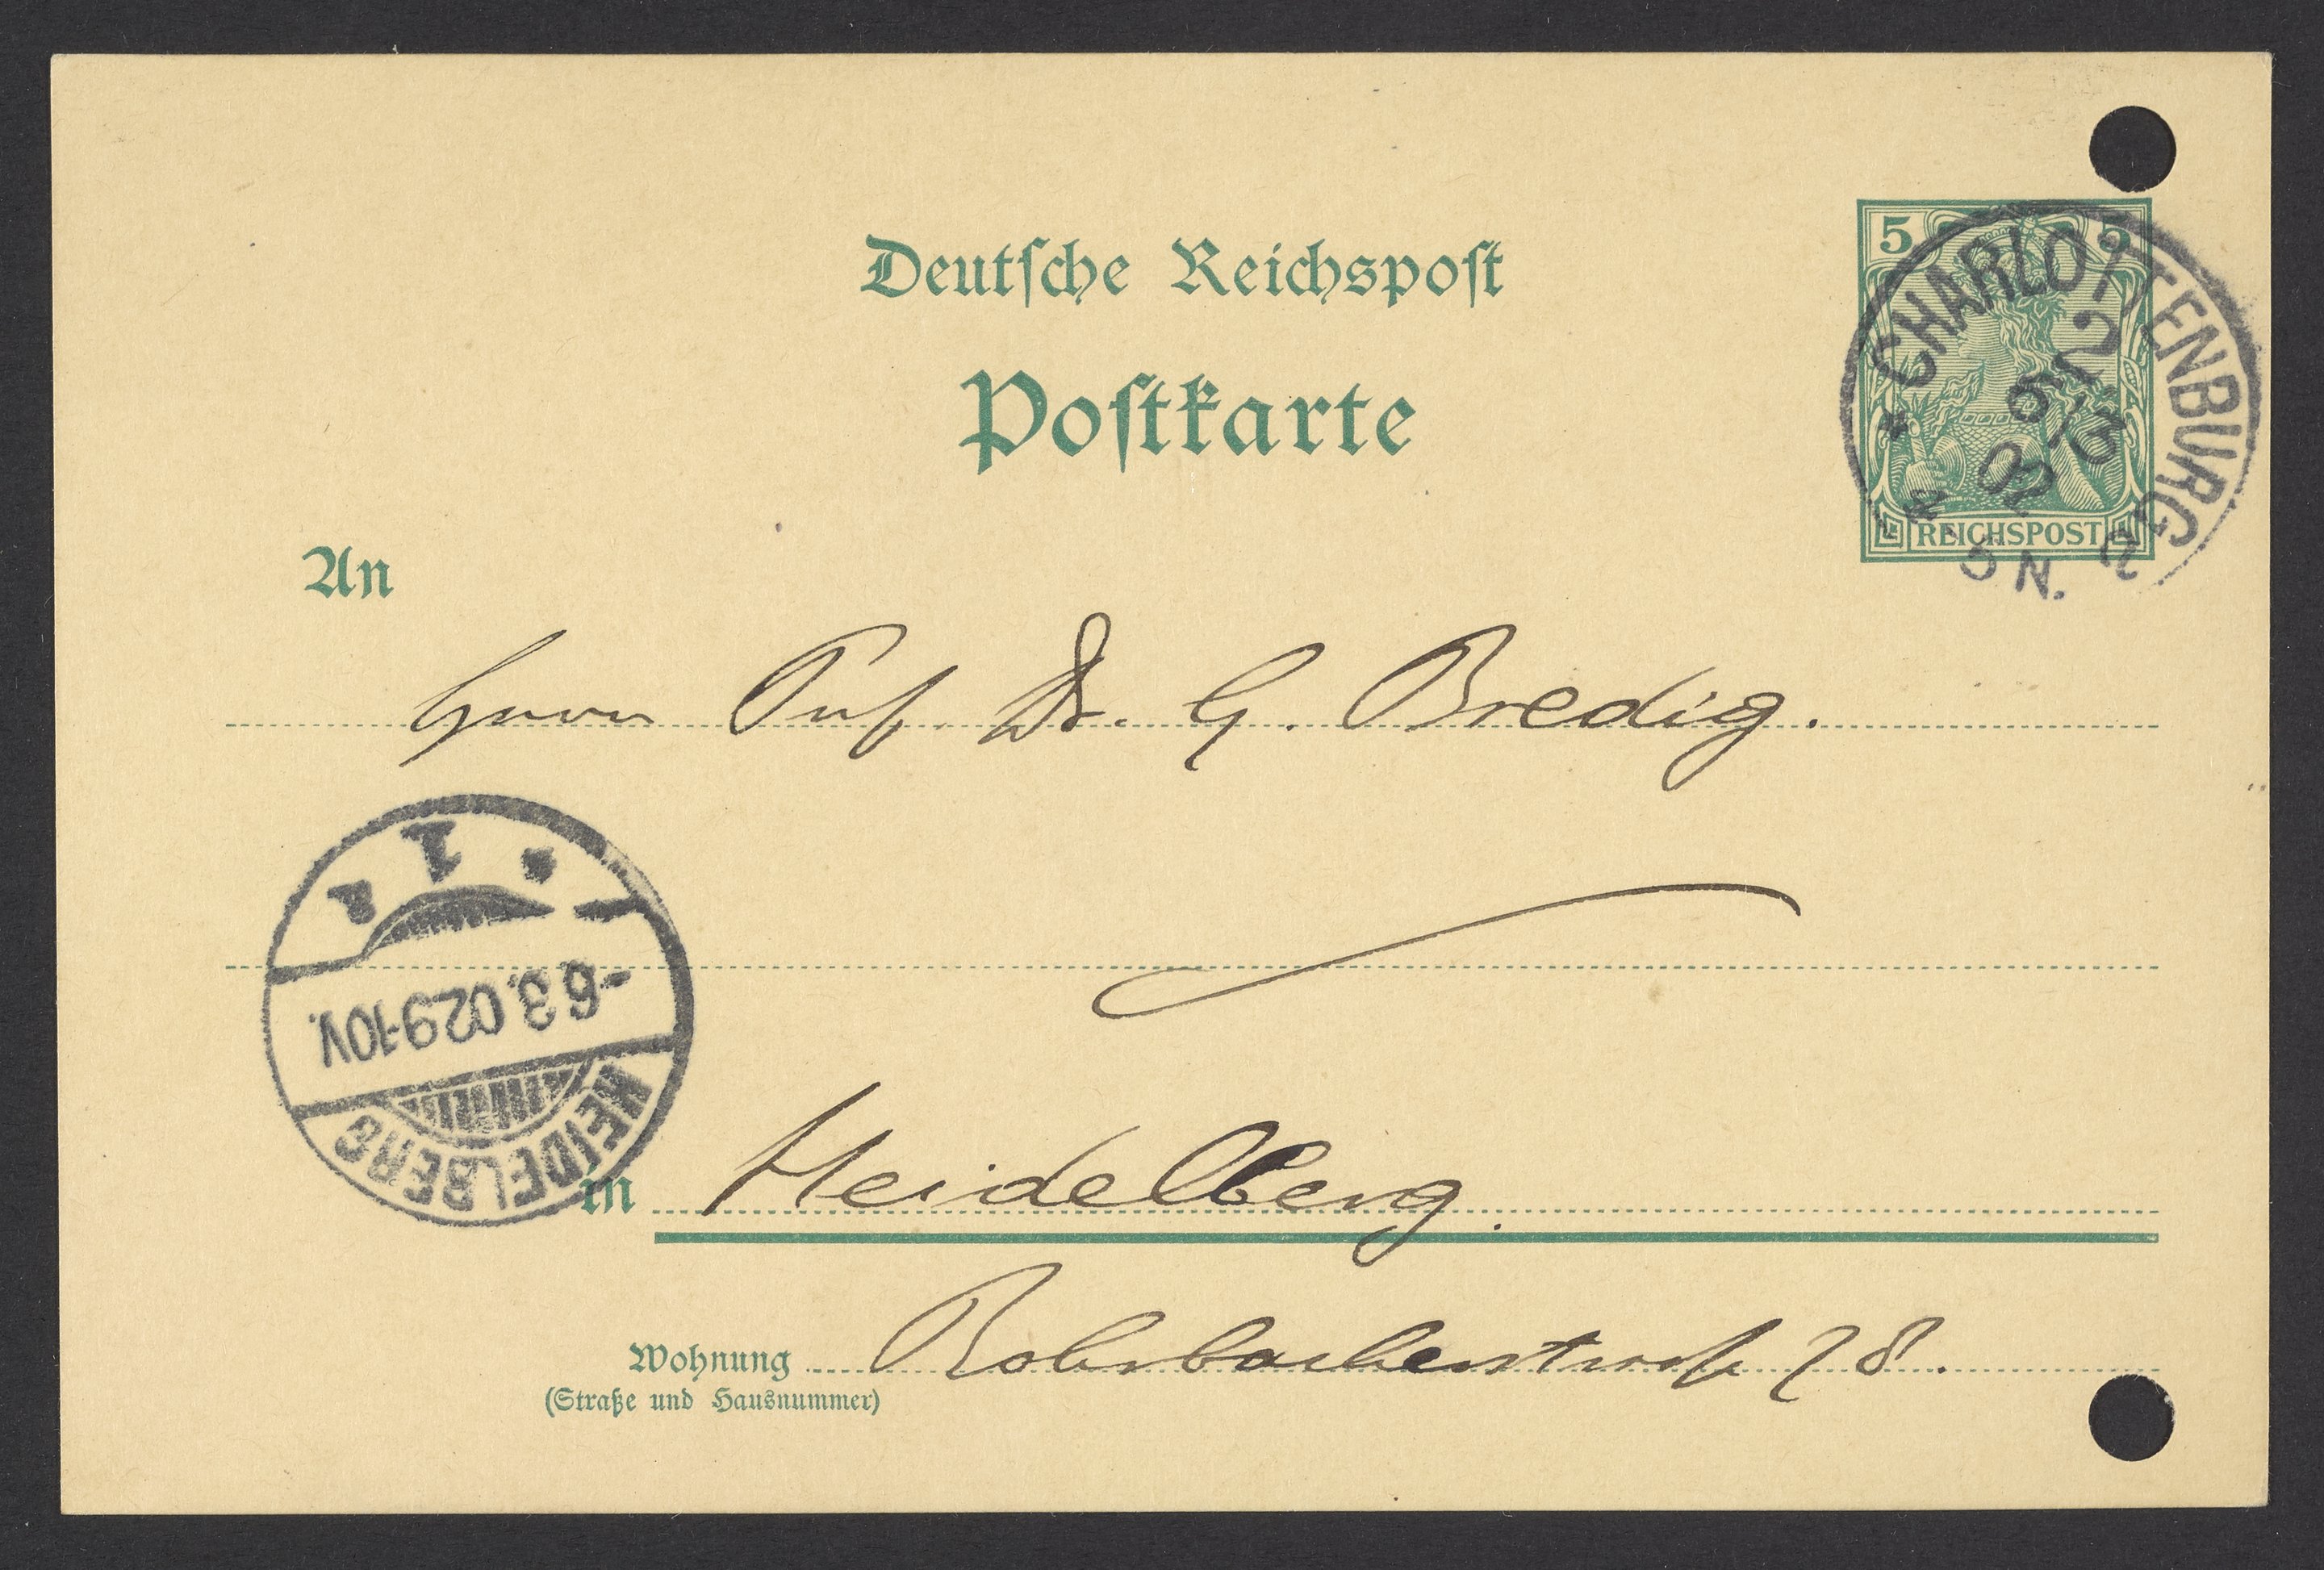 Deutsche Reichspost
Postkarte
5 5
REICHSPOST
CHARLOTTENBURG 2
5/3
02
N.
An
Herrn Prof. Dr. G. Bredig.
* 1 a
-6.3.02.9-10V.
HEIDELBERG
in Heidelberg.
Wohnung Rohrbacherstraße 28.
(Straße und Hausnummer)